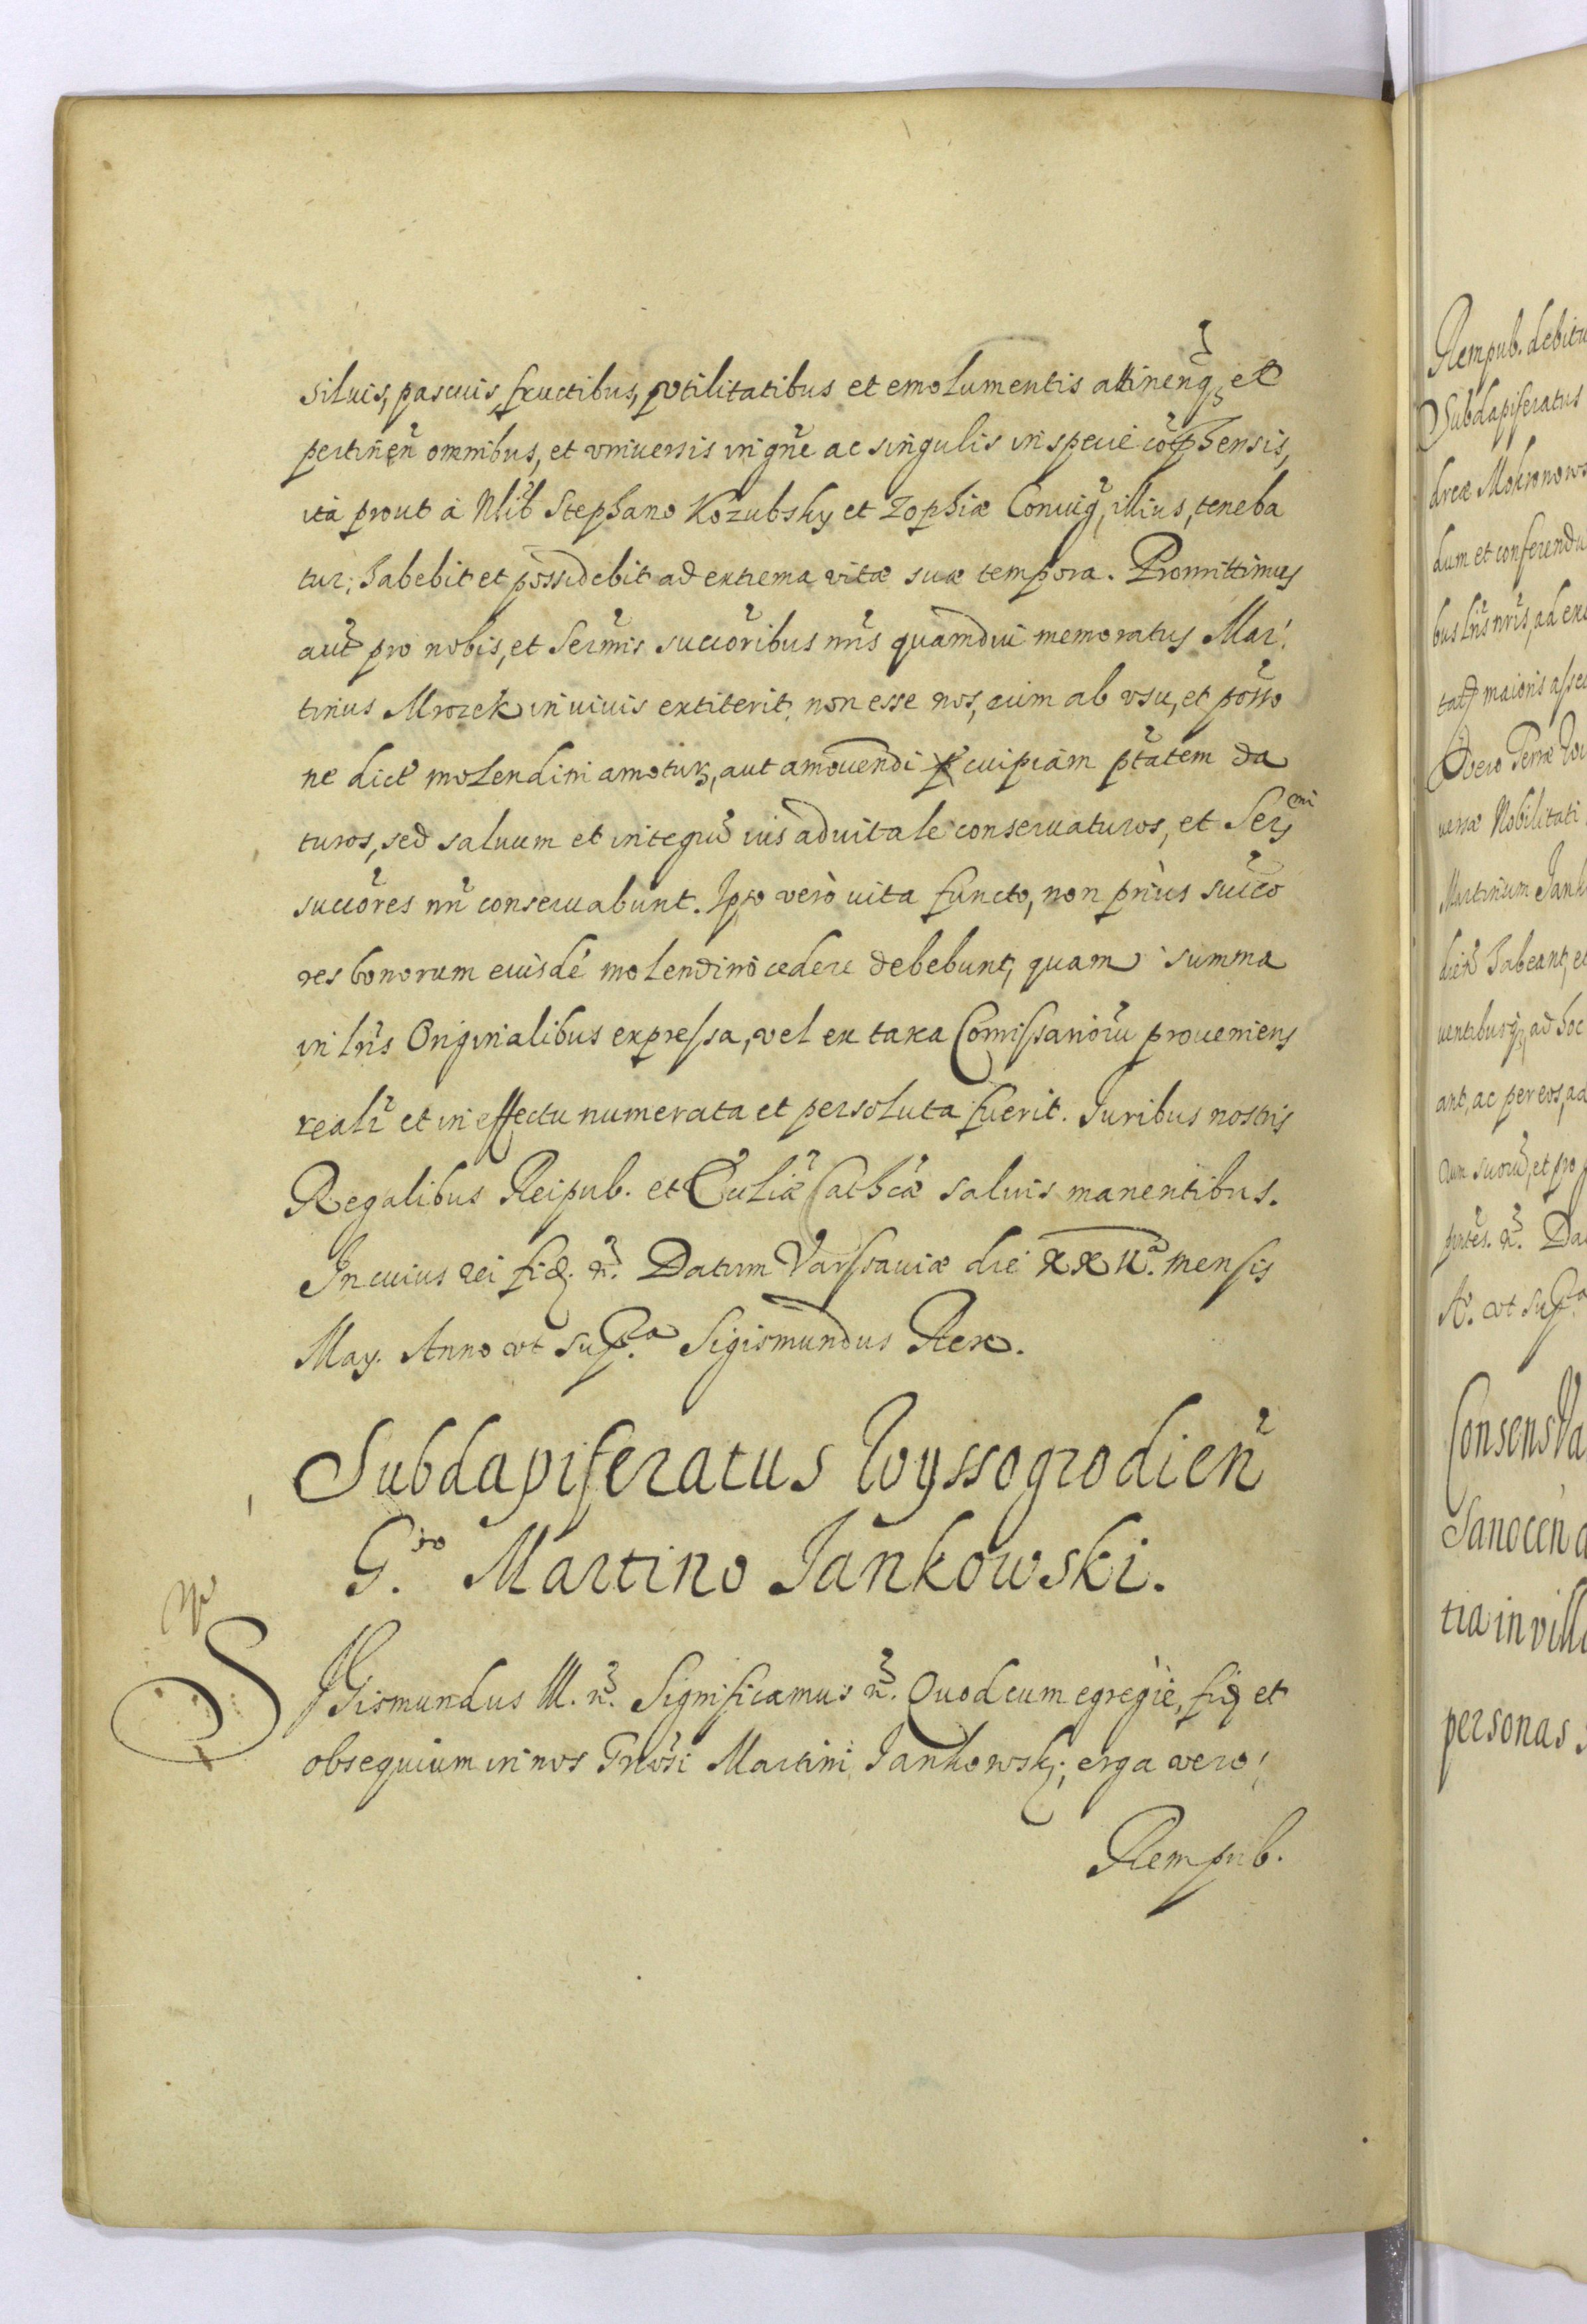 siluis, pascuis, fructibus, vtilitatibus et emolumentis attinenq3, et
pertinen̄ omnibus, et vniuersis in gn̄e ac singulis in specie cōp̄hensis,
ita prout à Nlib̄ Stephano Kozubsky et Zophiæ Coniuḡ, illius, teneba
tur; habebit et possidebit ad extrema vitæ suæ tempora. Promittimus
aut̄ pro nobis, et Serm̄is succōribus nr̄is quamdiu memoratus Mar
tinus Mrozek in viuis extiterit, non esse nos, eum ab vsu, et pōssio
ne dict̄ molendini amoturos, aut amouendi cuipiam pt̄atem da
turos, sed saluum et integrū ius aduitale conseruaturos, et Ser^mi
succōres nr̄i conseruabunt. Ipso verò vita functo, non priùs succō
res bonorum eiusdē molendino cedere debebunt, quam summa
in lr̄is Originalibus expressa, vel ex taxa Comissariorū proueniens
realr̄ et in effectu numerata et persoluta fuerit. Juribus nostris
Regalibus Reipub. et Ecc̄liæ Cathc̄æ saluis manentibus.
In cuius rei fid. &c. Datum Varssauiæ die XXII^a. mensis
May. Anno vt sup^a. Sigismundus Rex.
Subdapiferatus Wyssogrodien̄
G^so Martino Jankowski.
SIGismundus III. &c. Significamus &c. Quod cum egregiè, fid et
obsequium in nos Gnōsi Martini Jankowsky; erga vero
Rempub.
Rempub. debitu
Subdapiferatus
dreæ Mokronows
dum et conferendu
bus lr̄is nr̄is, ad ex
maioris asse
vero Terræ Wi
uersæ Nobilitati
Martinum Jank
dict̄ habeant, et
uentibusq3, ad hoc
ant, ac per eos, aa
suorū, et pro
pn̄tes. &c. Da
A^o. vt Sup^a
Consens
Sanocen̄ a
tia in villa
personas